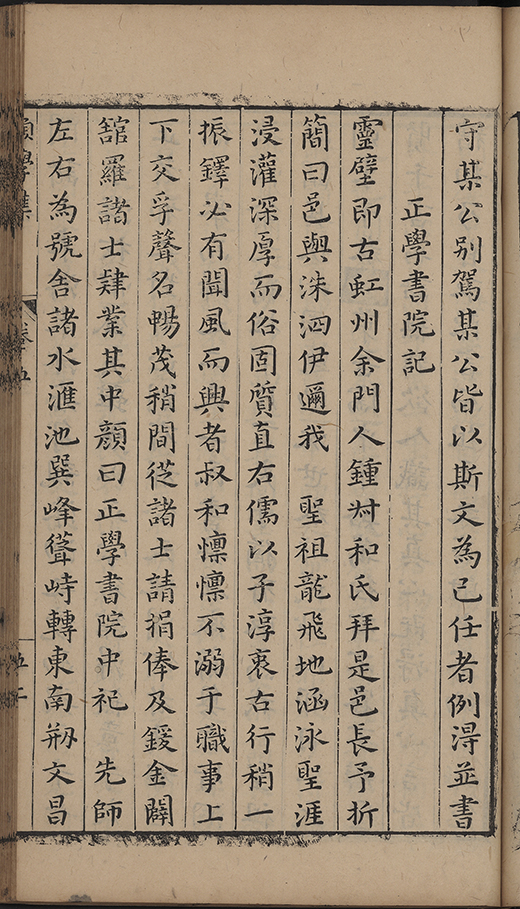 守某公別駕某公皆以斯文為己任者例得並書
正學書院記
靈壁即古虹州余門人鍾尗和氏拜是邑長予折
簡曰邑與洙泗伊邇我 聖祖龍飛地涵泳聖涯
浸灌深厚而俗固質直右儒以子淳衷古行稍一
振鐸必有聞風而興者叔和懍懍不溺于職事上
下交孚聲名暢茂稍間從諸士請捐俸及鍰金闢
舘羅諸士肄業其中顏曰正學書院中祀 先師
左右為號舍諸水滙池巽峰聳峙轉東南剏文昌
願學集
卷五
五十